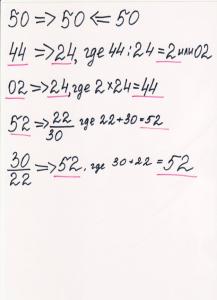 50 => 50 <= 50
44 => 24, где 44 : 24 = 2 или 02
02 => 24, где 2 × 24 = 44
52 => 22/30 где 22 + 30 = 52
30/22 => 52, где 30 + 22 = 52